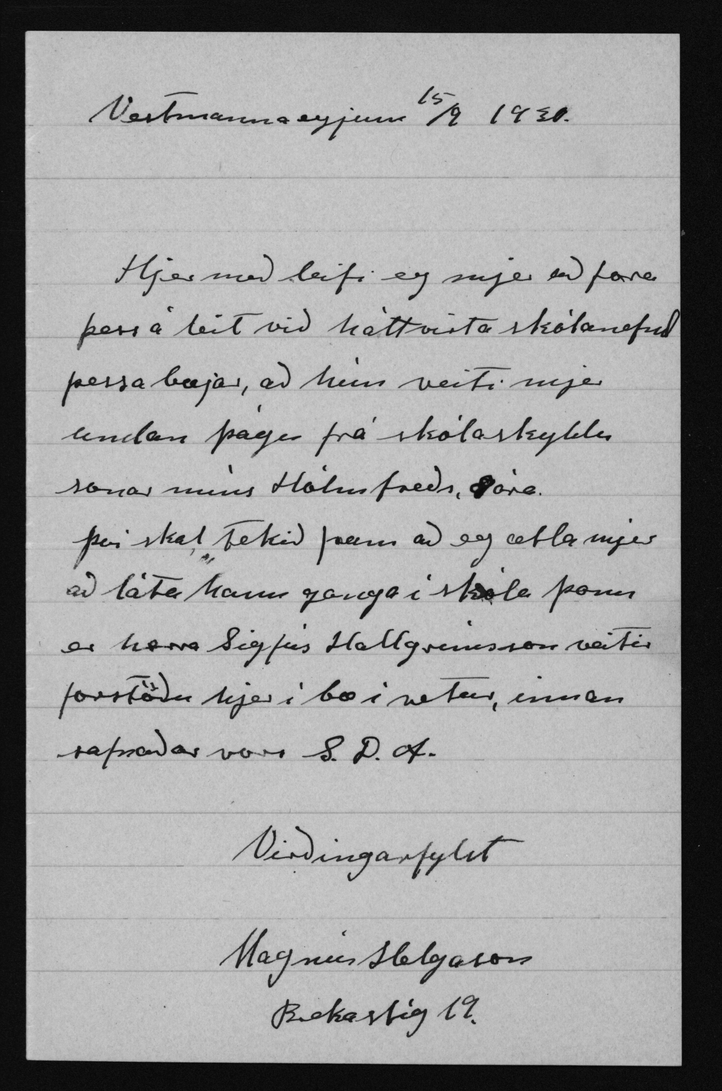 Vestmannaeyjum 15/9 1930.
Hjer með leifi eg mjer að fara
þess á leit við háttvirta skólanefnd
þessa bæjar, að hún veiti mjer
undan þágu frá skólaskyldu
sonar míns Hólmfreðs,
því skal tekið fram að eg ætla mjer
að láta hann ganga í skóla þann
er herra Sigfús Hallgrímsson veitir
forstöðu hjer í bæ í vetur, innan
safnaðar vors S. D. A.
Virðingarfylst
Magnús Helgason
Brekastig 19.